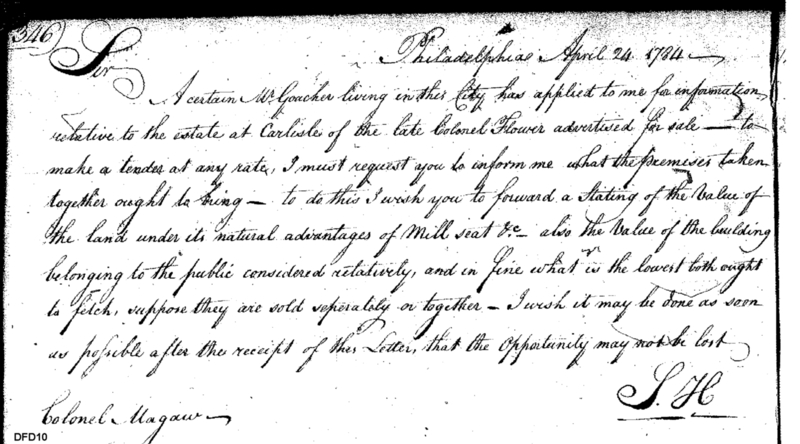 346)
Sir
Philadelphia April 24. 1784 —
A certain Mr. Goucher living in this City has applied to me for information
relative to the estate at Carlisle of the late Colonel Flower advertised for sale — to
make a tender at any rate, I must request you to inform me what the premises taken
together ought to bring — to do this I wish you to forward a Stating of the Value of
the land under its natural advantages of Mill seat &c — also the Value of the building
belonging to the public considered relatively, and in fine what is the lowest both ought
to fetch, suppose they are sold seperately or together — I wish it may be done as soon
as possible after the receipt of this Letter, that the Opportunity may not be lost
S. H
Colonel Magaw —
DFD10